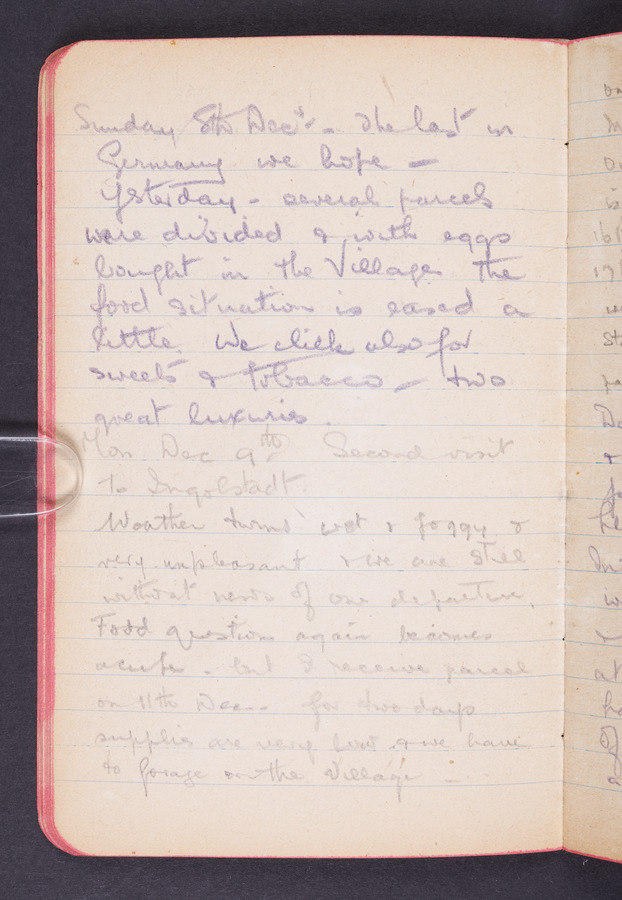 Sunday 8th Decr. - The last in
Germany we hope -
Ysterday - several parcels
were divided & with eggs
bought in the Village the
food situation is eased a
little. We click also for
sweets & tobacco - two
great luxuries.
Mon. Dec 9th Second visit
to Ingolstadt.
Weather turns wet & foggy &
very unpleasant & we are still
without news of our departure.
Food question again becomes
acute - but I receive parcel
on 11th Dec. - for two days
supplies are very low & we have
to forage in the Village -